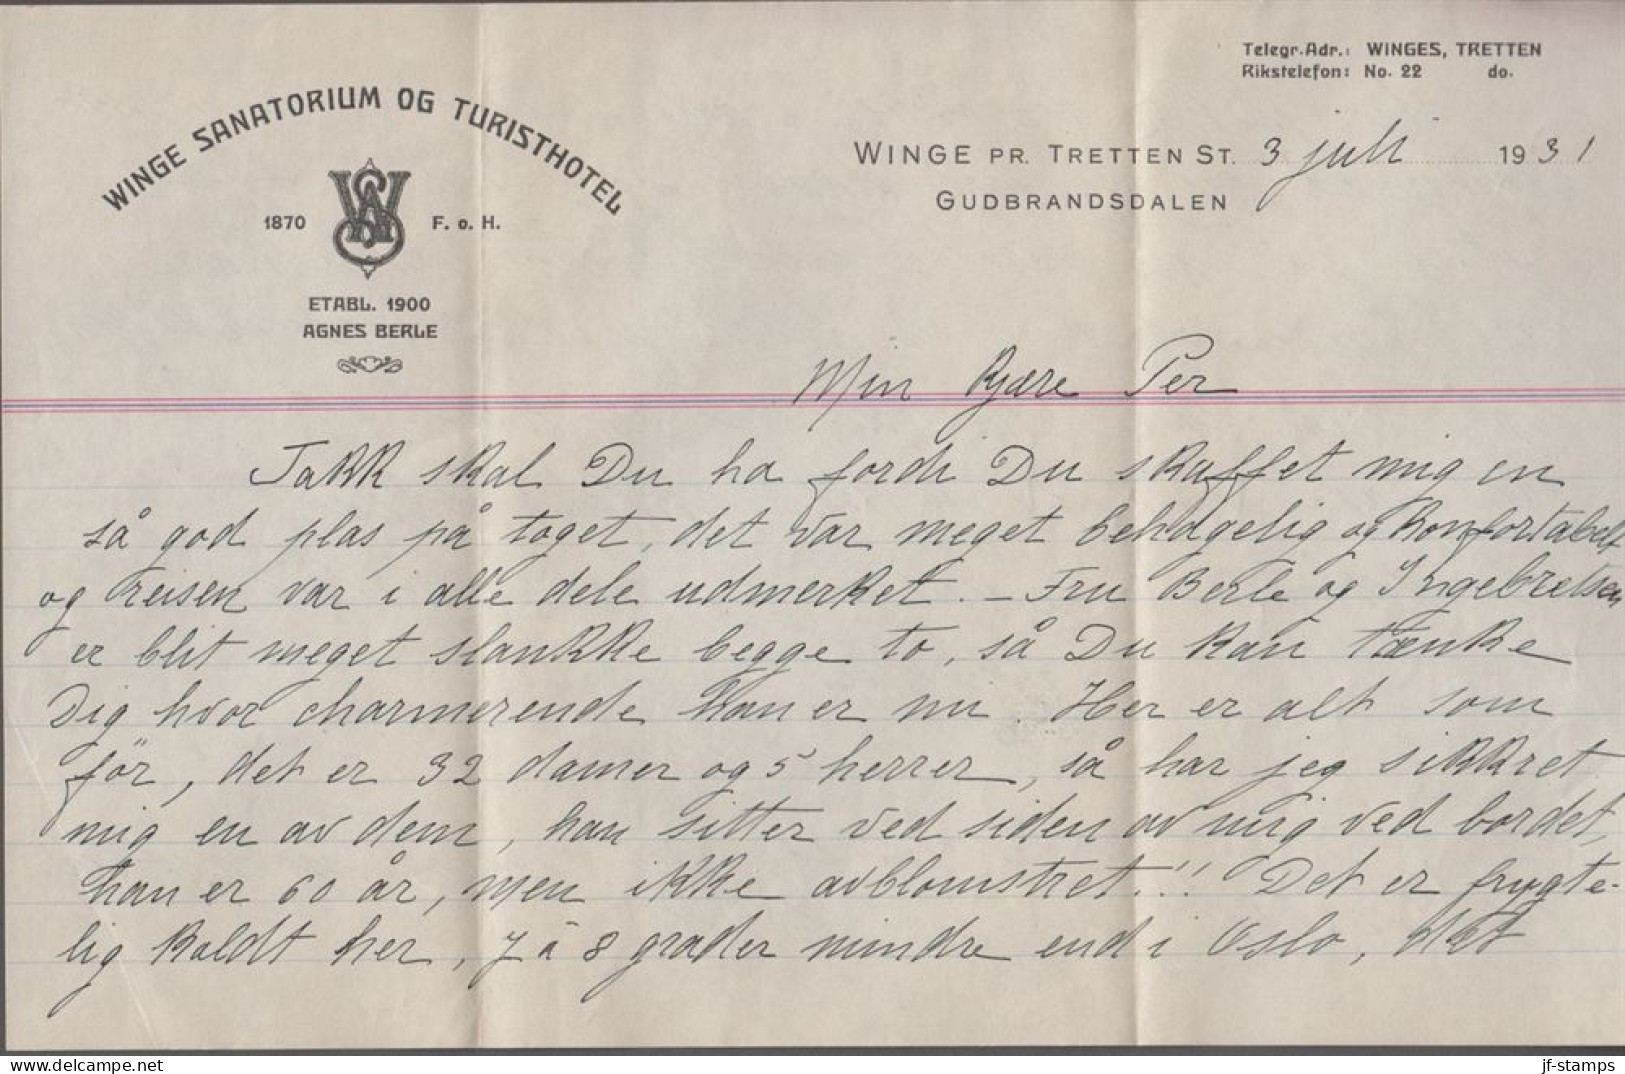 Telegr.Adr.: WINGES, TRETTEN
Rikstelefon: No. 22 do.
WINGE SANATORIUM OG TURISTHOTEL
1870 F. o. H.
ETABL. 1900
AGNES BERLE
WINGE PR. TRETTEN ST. 3 juli 1931
GUDBRANDSDALEN
Min Kjære Per
Takk skal Du ha fordi Du skaffet mig en
så god plas på toget, det var meget behagelig og konfortabelt
og reisen var i alle dele udmerket. – Fru Berle og Ingebretsen
er blit meget slankke begge to, så Du kan tænke
Dig hvor charmerende han er nu. Her er alt som
för, det er 32 damer og 5 herrer, så har jeg sikkret
mig en av dem, han sitter ved siden av mig ved bordet,
han er 60 år, men ikke avblomstret!!! Det er frygte-
lig koldt her, 7 à 8 grader mindre end i Oslo, det
jf-stamps
delcampe.net